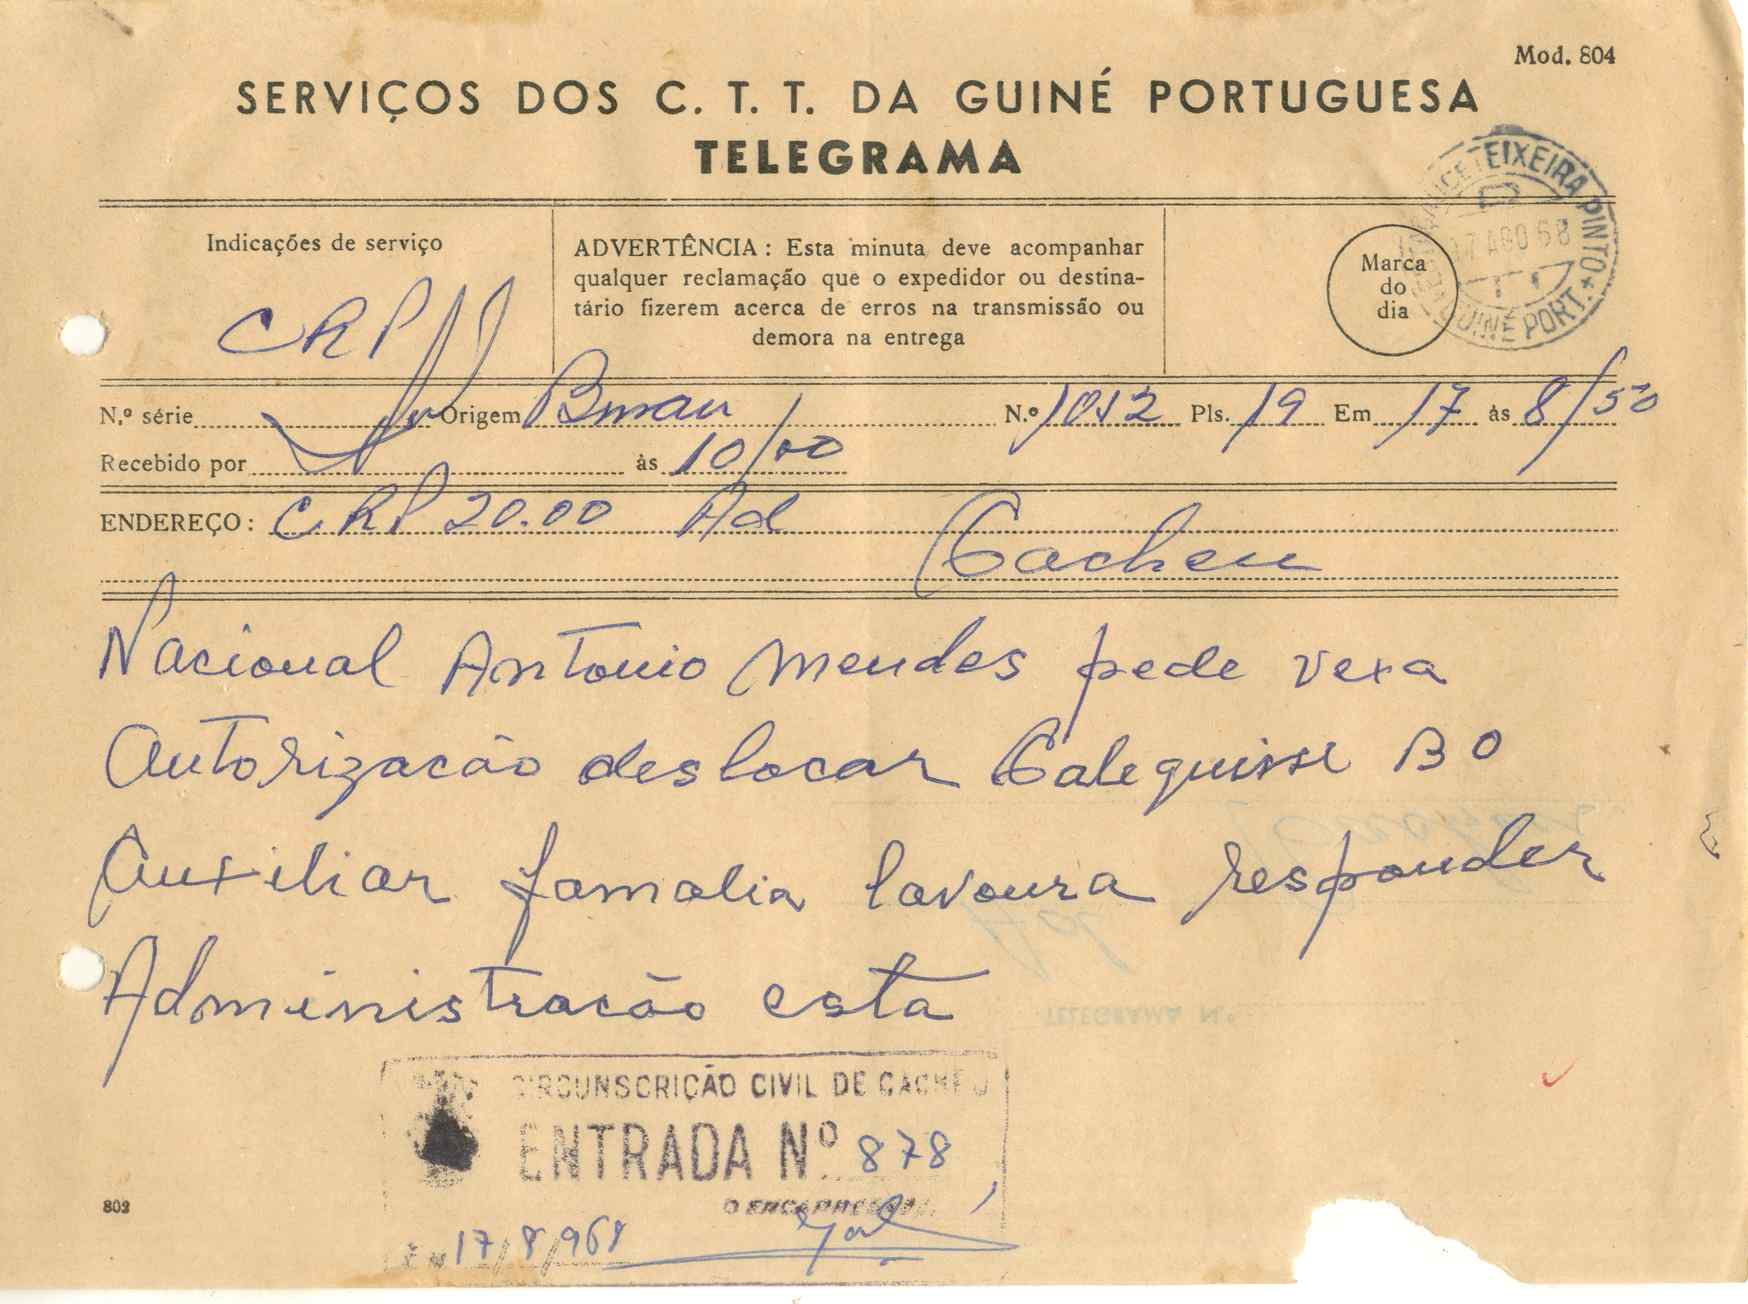 Mod. 804
SERVIÇOS DOS C. T. T. DA GUINÉ PORTUGUESA
TELEGRAMA
Indicações de serviço
CRP
ADVERTÊNCIA : Esta minuta deve acompanhar
qualquer reclamação que o expedidor ou destina-
tário fizerem acerca de erros na transmissão ou
demora na entrega
Marca
do
dia
TEIXEIRA PINTO
17 AGO 68
GUINÉ PORT.
N.º série Origem Bissau N.º 1012 Pls. 19 Em 17 às 8/50
Recebido por às 10/00
ENDEREÇO : CRP 20.00 Ad
Cacheu
Nacional Antonio Mendes pede vexa
Autorizacão deslocar Calequisse BO
Auxiliar familia lavoura responder
Administracão esta
CIRCUNSCRIÇÃO CIVIL DE CACHEU
ENTRADA Nº 878
O ENCARREGADO
Em 17/8/968
802
TELEGRAMA N.º